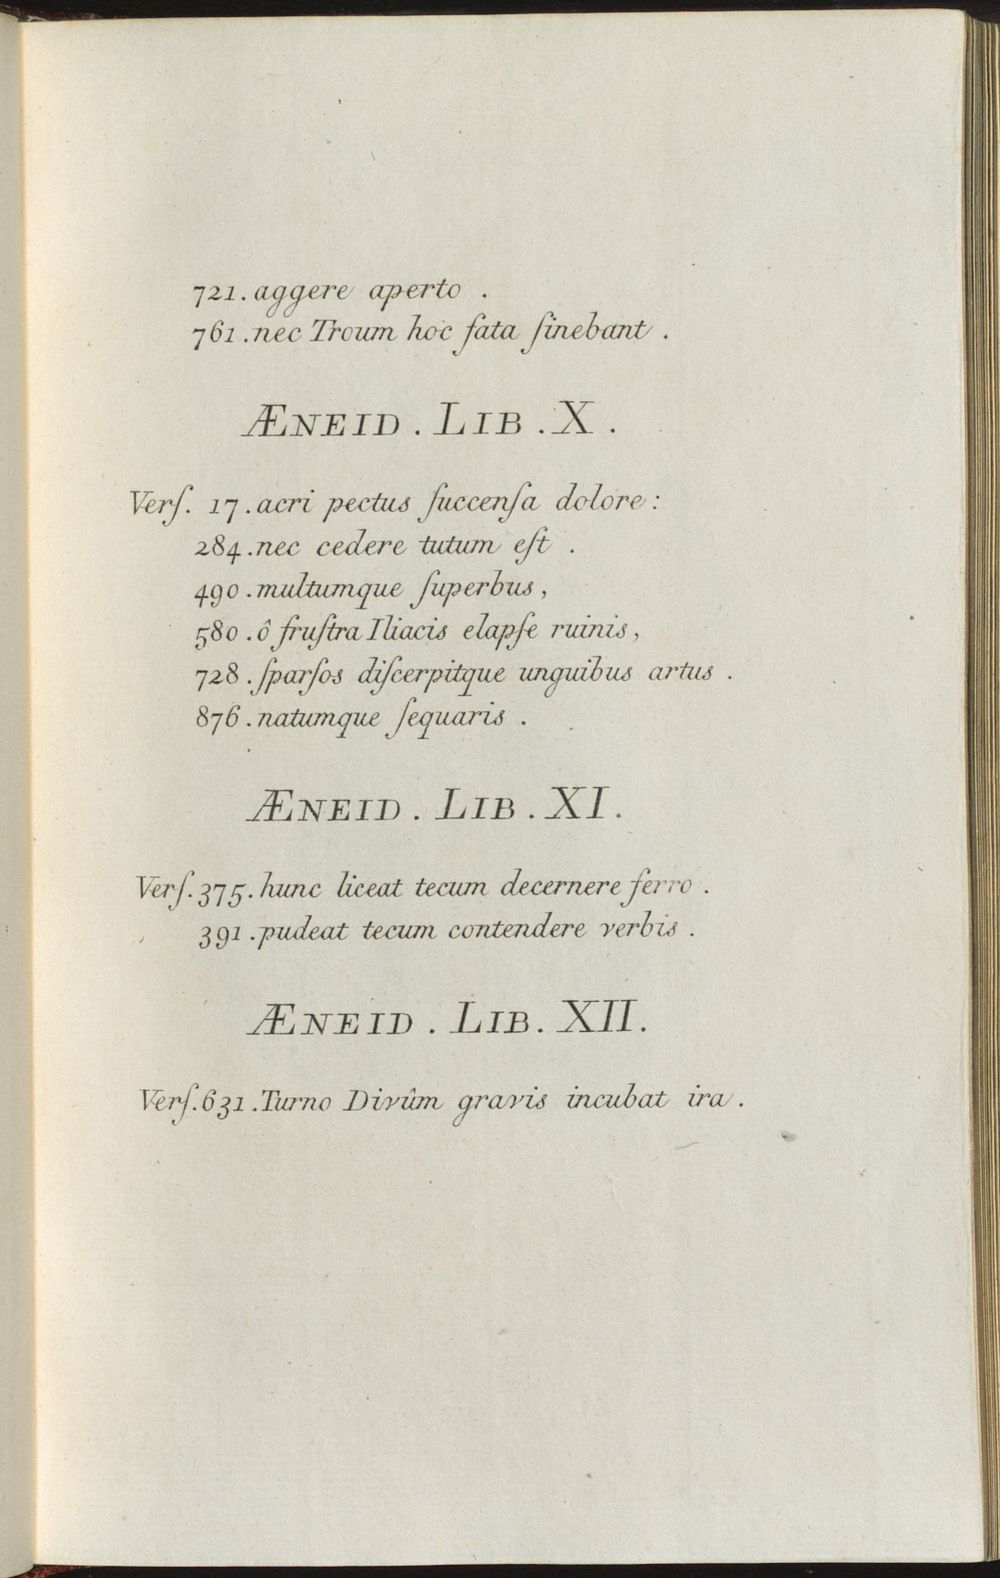 721. aggere aperto .
761. nec Troum hoc fata ſinebant .
ÆNEID . LIB . X .
Verſ. 17. acri pectus ſuccenſa dolore :
284. nec cedere tutum eſt .
490. multumque ſuperbus ,
580. ô fruſtra Iliacis elapſe ruinis ,
728. ſparſos diſcerpitque unguibus artus .
876. natumque ſequaris .
ÆNEID . LIB . XI .
Verſ. 375. hunc liceat tecum decernere ferro .
391. pudeat tecum contendere verbis .
ÆNEID . LIB . XII .
Verſ. 631. Turno Divûm gravis incubat ira .